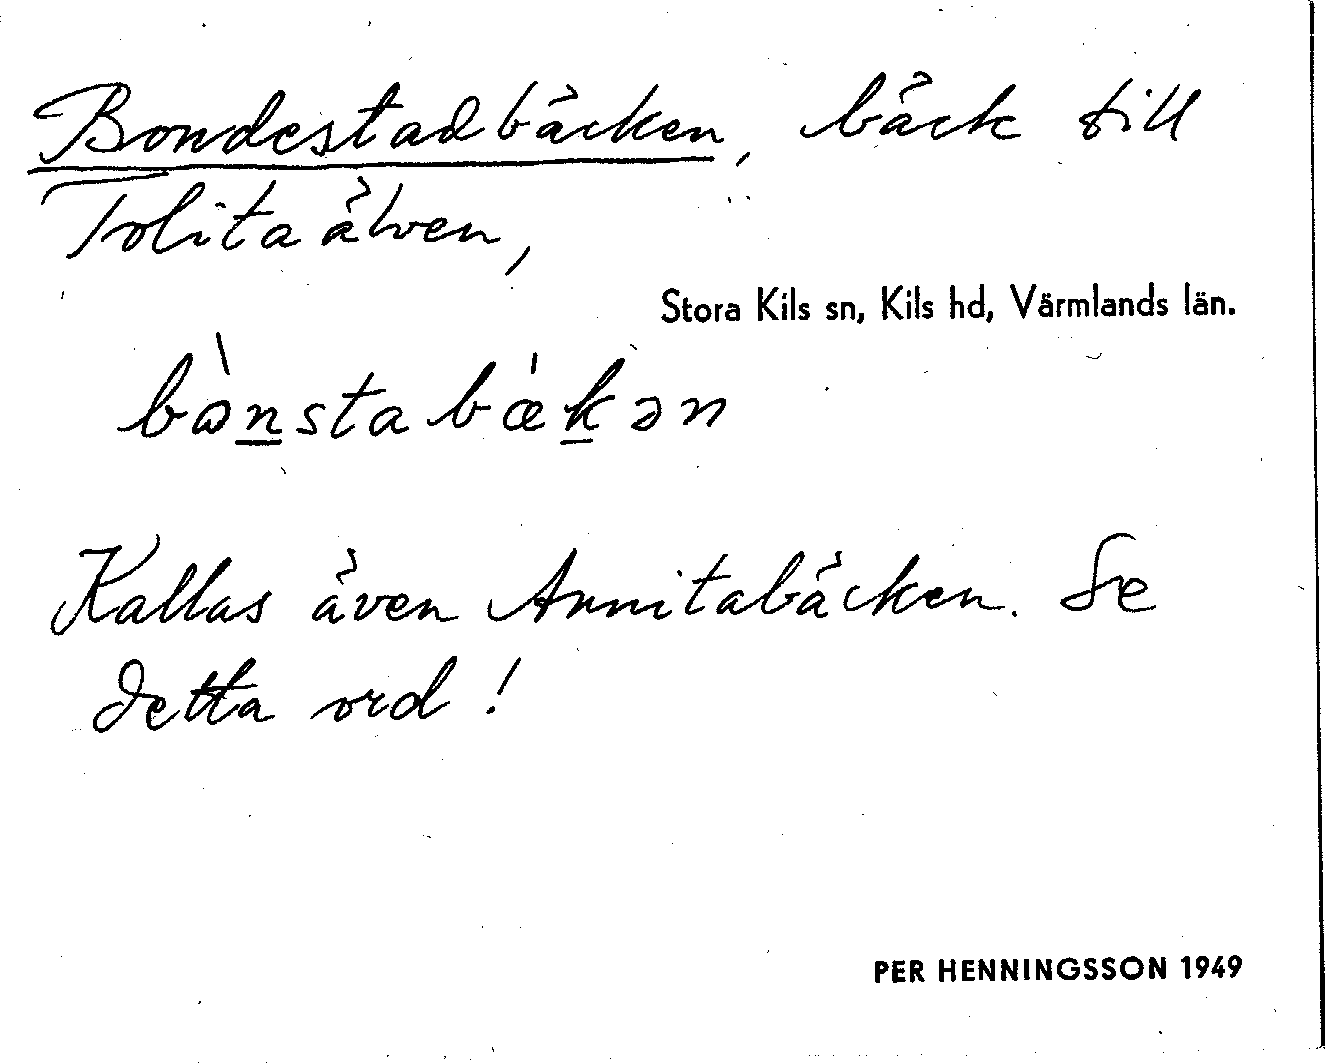 Bondestadbäcken, bäck till
Tolitaälven,
Stora Kils sn, Kils hd, Värmlands län.
bɷ̀n̲stabæ̍k̲ən
Kallas även Annitabäcken. Se
detta ord!
PER HENNINGSSON 1949